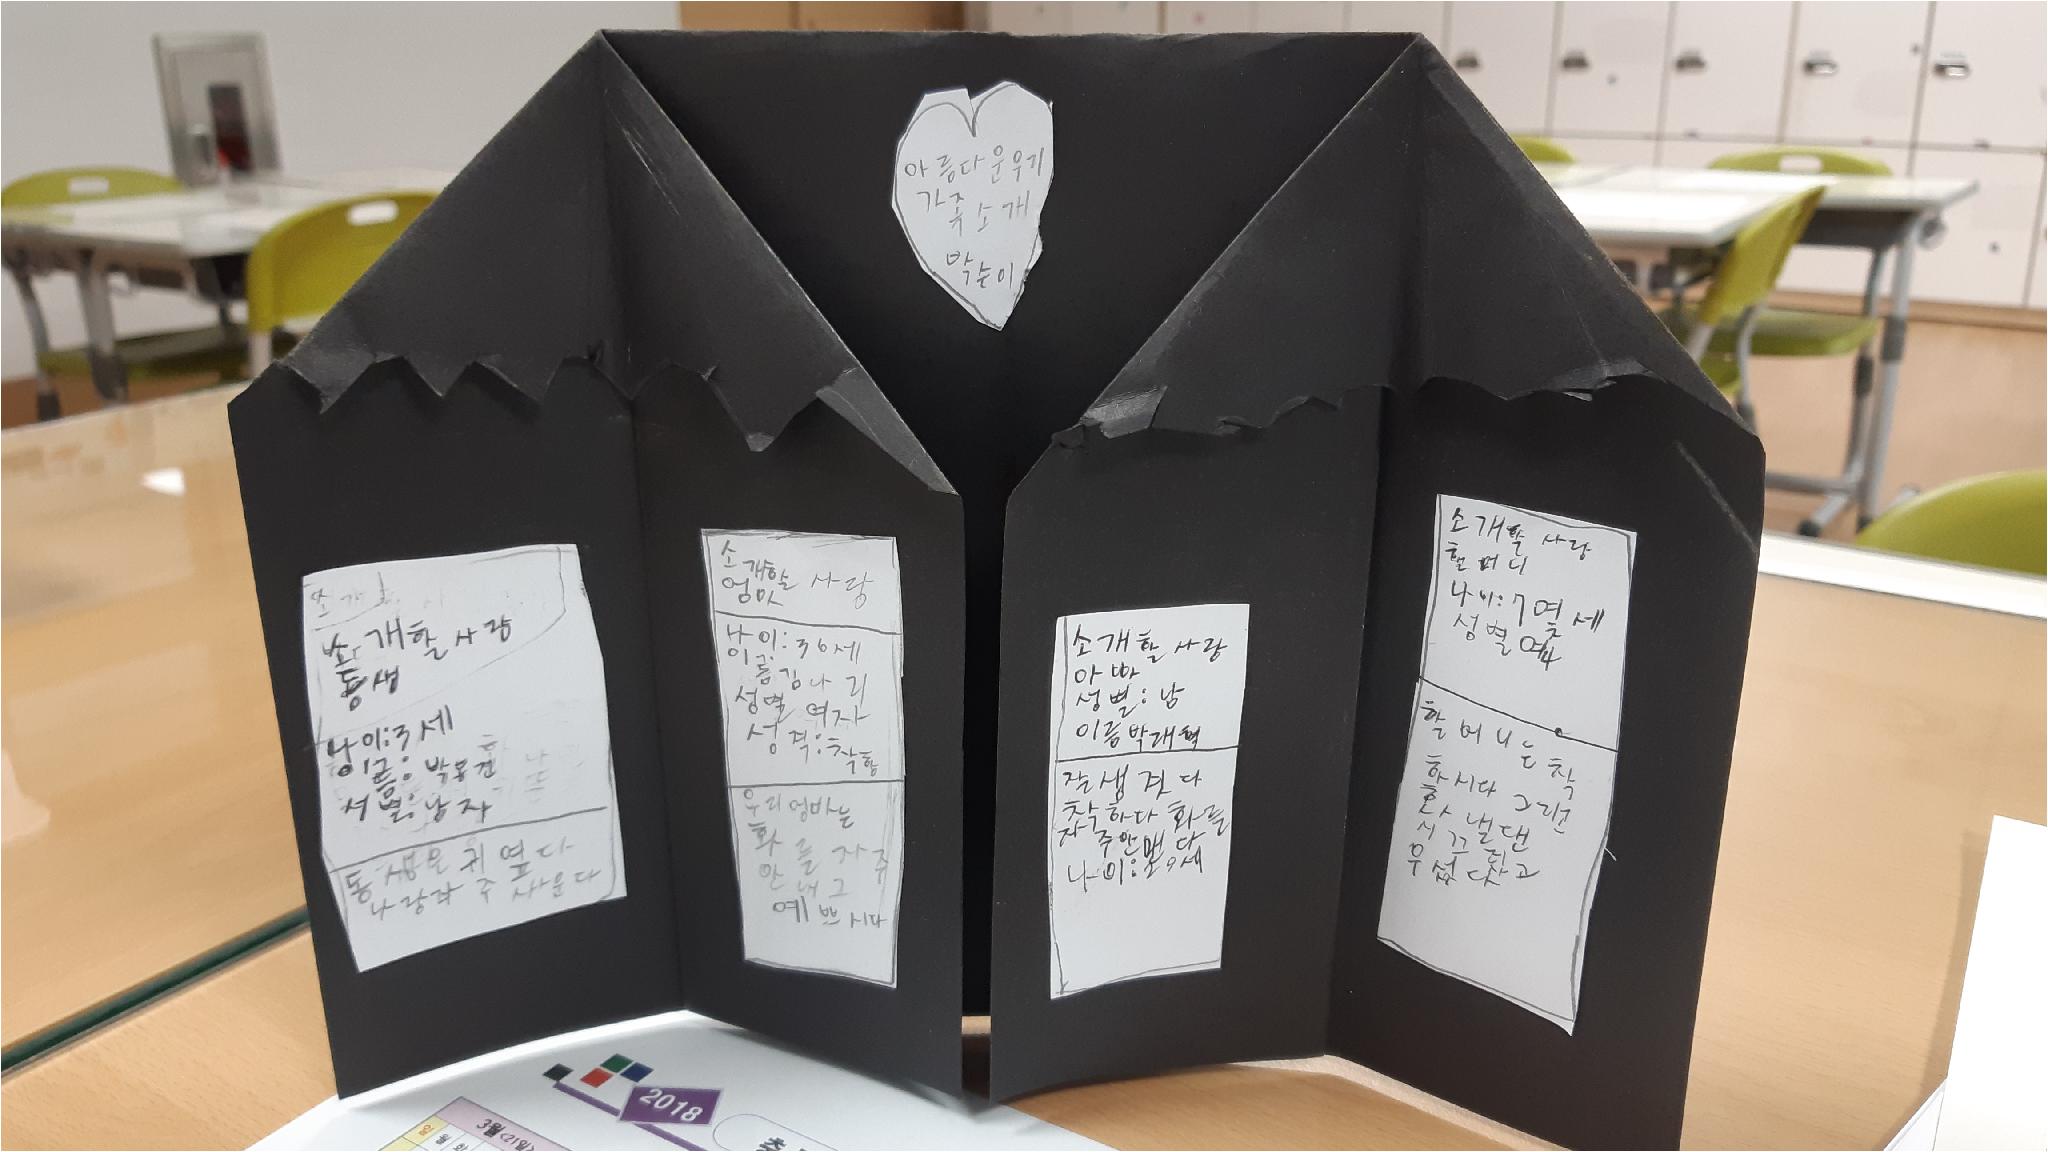 아름다운우리
가족소개
박솔이
소개할사람
동생
나이:3세
이름:박용진
서별:남자
동생은귀엽다
나랑자주싸운다
소개할 사람
엄맛
나이:36세
이름김나리
성별 여자
성격:착함
우리엄마는
화를자주
안내그
예쁘시다
소개할 사람
아빠
성별:남
이름박대혁
잘생겻다
착하다 화를
자주안낸다
나이:39세
소개할 사람
할머니
나이:7몇세
성별여자
할머니는착
하시다 그런
화낼댄
시끄럽고
무섭다고
2018
3월(21일)